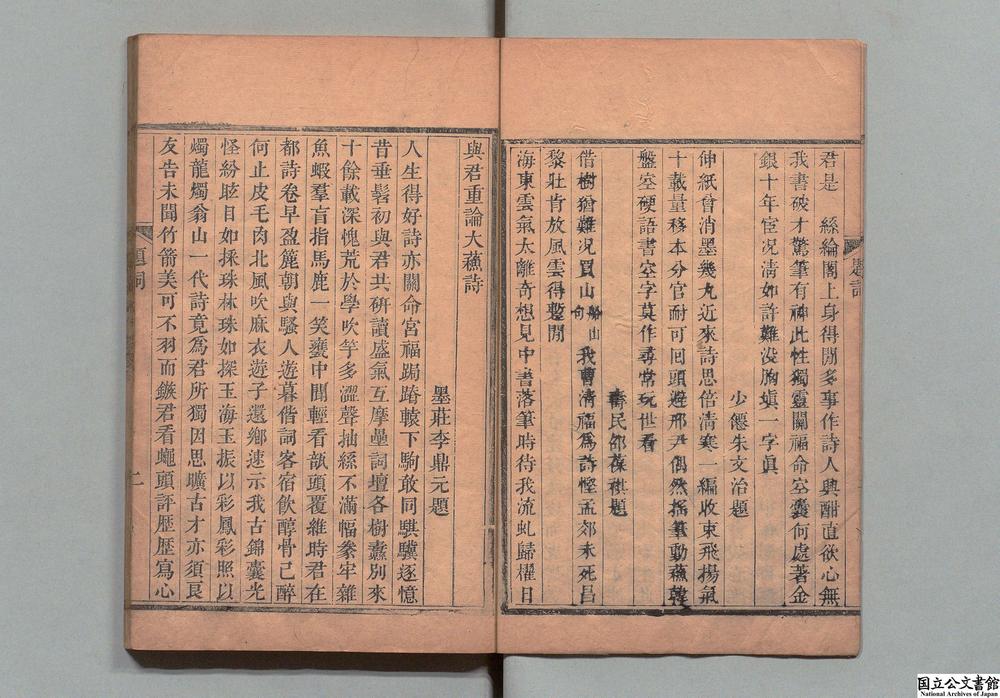 君是　絲綸閣上身得閒多事作詩人興酣直欲心無
我書破才驚筆有神此性獨靈關福命空囊何處著金
銀十年宦况淸如許難没胸塡一字眞
少僊朱文治題
伸紙曾消墨幾九近來詩思倍淸寒一編收束飛揚氣
十載量移本分官耐可回頭避邢尹偶然摇筆動蘇韓
盤空硬語書空字莫作尋常玩世看
壽民邵葆祺題
借樹猶難况買山船山句我曹淸福爲詩慳孟郊未死昌
黎壯肯放風雲得蹔閒
海東雲氣太離奇想見中書落筆時待我流虬歸櫂日
題詞
與君重論大蘇詩
墨莊李鼎元題
人生得好詩亦關命宮福跼蹐轅下駒敢同騏驥逐憶
昔垂髫初與君共硏讀盛氣互摩壘詞壇各樹纛別來
十餘載深愧荒於學吹竽多澀聲抽絲不滿幅豢牢雜
魚蝦羣盲指馬鹿一笑甕中聞輕看瓿頭覆維時君在
都詩卷早盈簏朝與騷人遊暮偕詞客宿飮醇骨已醉
何止皮毛肉北風吹麻衣遊子還鄉速示我古錦囊光
怪紛眩目如採珠林珠如探玉海玉振以彩鳳彩照以
燭龍燭翁山一代詩竟爲君所獨因思曠古才亦須良
友告未聞竹箭美可不羽而鏃君看蠅頭評歴歴寫心
題詞
二
国立公文書館
National Archives of Japan